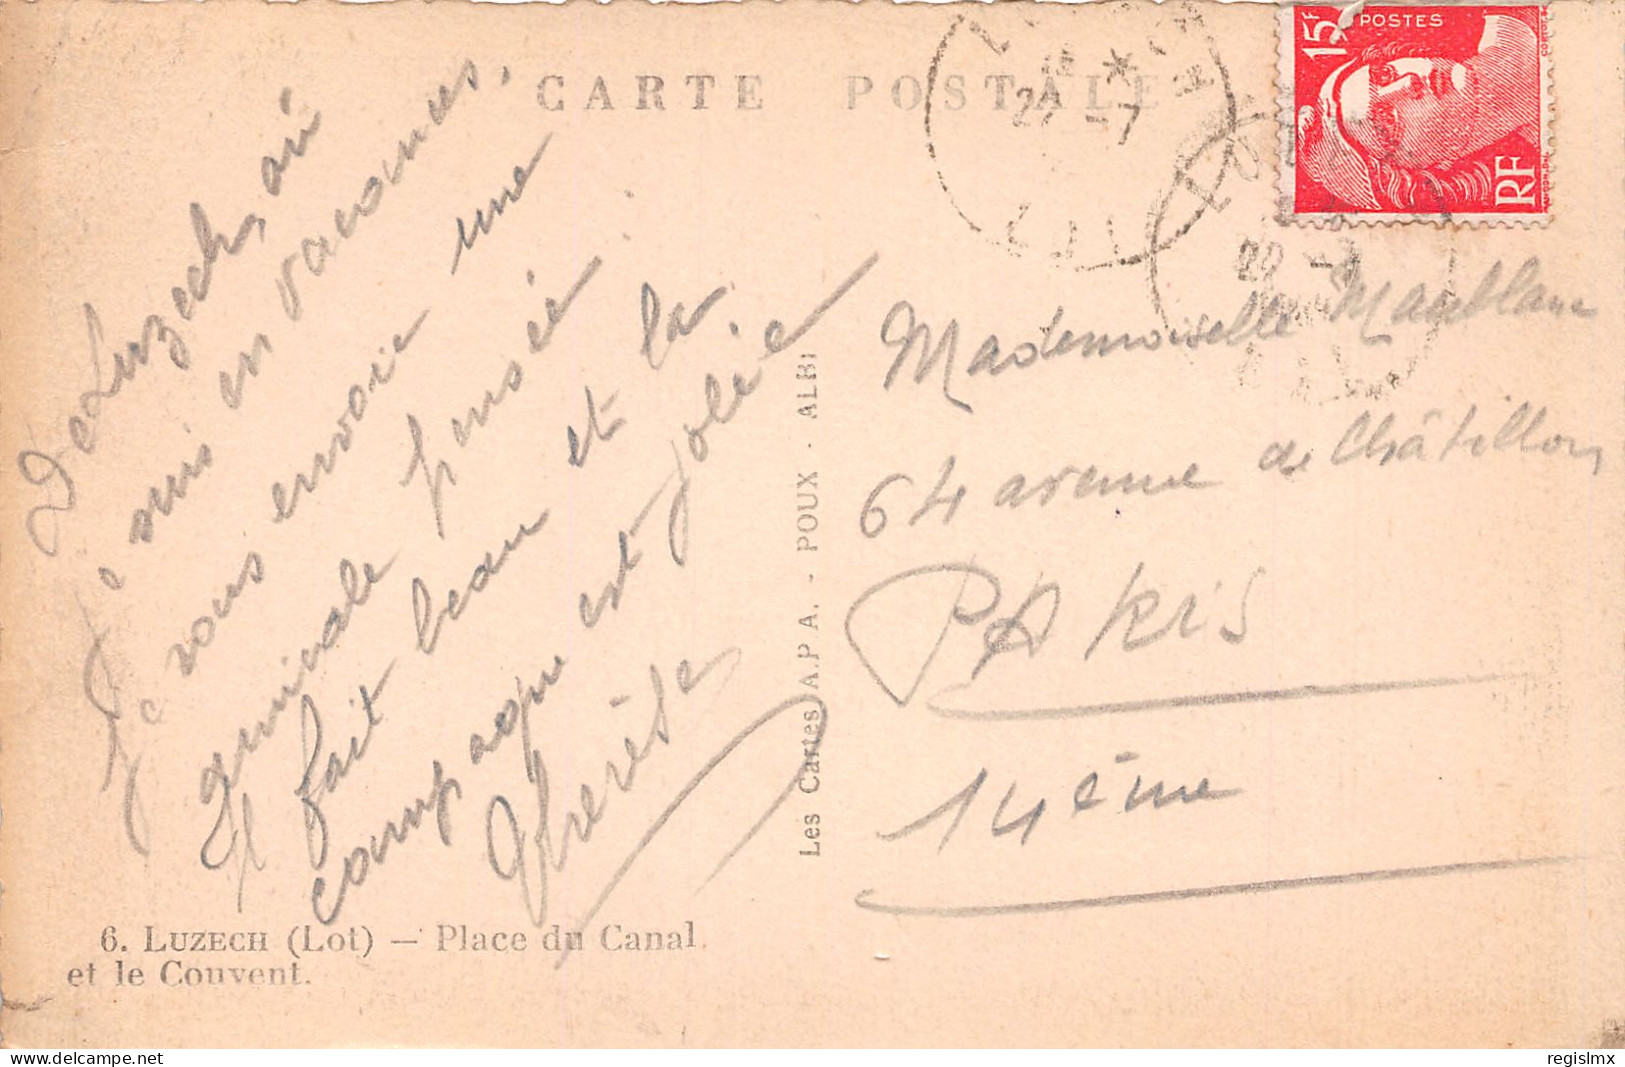 CARTE POSTALE
15F
POSTES
RF
27 -7
22 -7
De Luzech, où
je suis en vacances,
Je vous envoie une
amicale pensée.
Il fait beau et la
campagne est jolie
Thérèse
Mademoiselle Maublanc
64 avenue de Châtillon
PARIS
14ème
Les Cartes A.P A. - POUX - ALBI
6. LUZECH (Lot) — Place du Canal
et le Couvent.
regislmx